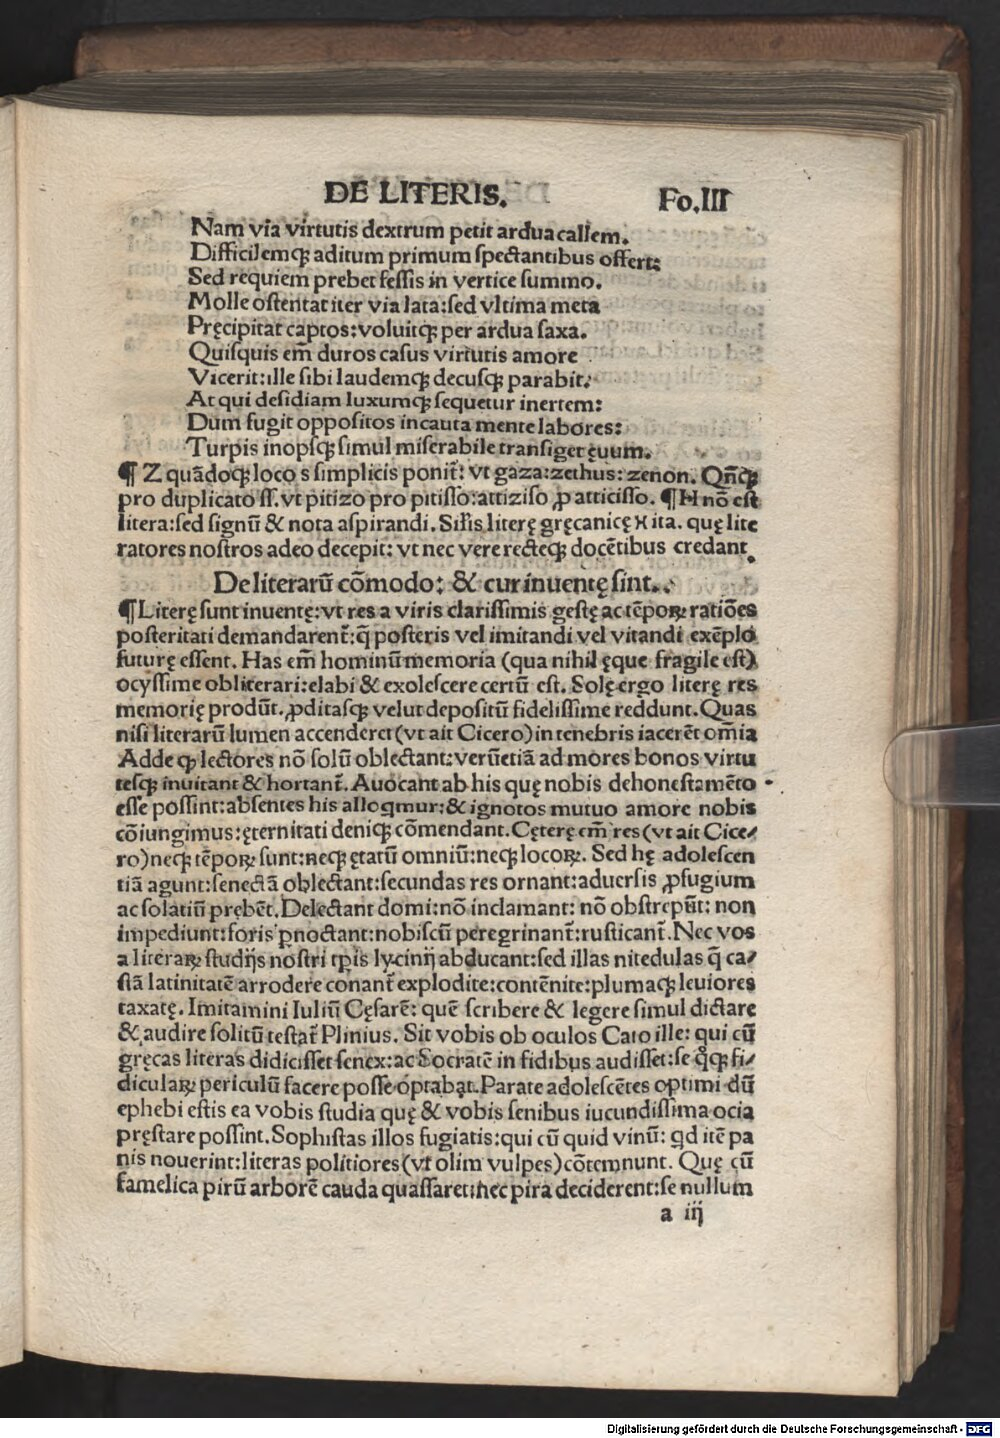 DE LITERIS.
Fo.III
Nam via virtutis dextrum petit ardua callem.
Difficilemqꝫ aditum primum spectantibus offert:
Sed requiem prebet fessis in vertice summo.
Molle ostentat iter via lata:sed vltima meta
Pręcipitat captos:voluitqꝫ per ardua saxa.
Quisquis em̃ duros casus virtutis amore
Vicerit:ille sibi laudemqꝫ decusqꝫ parabit.
At qui desidiam luxumqꝫ sequetur inertem:
Dum fugit oppositos incauta mente labores:
Turpis inopsqꝫ simul miserabile transiget ęuum.
¶ Z quãdoqꝫ loco s simplicis ponit̃: vt gaza:zethus:zenon. Qñqꝫ
pro duplicato ss̃.vt pitizo pro pitisso:attiziso ꝓ atticisso. ¶ H nõ est
litera:sed signũ & nota aspirandi. Sil̃is literę gręcanicę ꓘ ita. quę lite
ratores nostros adeo decepit: vt nec vere recteqꝫ docẽtibus credant.
De literarũ cõmodo: & cur inuentę sint.
¶ Literę sunt inuentę:vt res a viris clarissimis gestę ac tẽpoꝝ ratiões
posteritati demandarent̃:q̃ posteris vel imitandi vel vitandi exẽplo
futurę essent. Has em̃ hominũ memoria (qua nihil ęque fragile est)
ocyssime obliterari:elabi & exolescere certũ est. Solę ergo literę res
memorię produ͂t. ꝓditasqꝫ velut depositũ fidelissime reddunt. Quas
nisi literarũ lumen accenderet (vt ait Cicero) in tenebris iacerẽt om̃ia
Adde ꝙ lectores nõ solũ oblectant:verũetiã ad mores bonos virtu
tesqꝫ inuitant & hortant̃. Auocant ab his quę nobis dehonestamẽto
esse possint:absentes his alloqmur:& ignotos mutuo amore nobis
cõiungimus:ęternitati deniqꝫ cõmendant. Cęterę em̃ res (vt ait Cice/
ro) neqꝫ tẽpoꝝ sunt:neqꝫ ętatũ omniũ:neqꝫ locoꝝ. Sed hę adolescen
tiã agunt:senectã oblectant:secundas res ornant:aduersis ꝓfugium
ac solatiũ prębẽt. Delectant domi:nõ inclamant: nõ obstrepũt: non
impediunt:foris p̱noctant:nobiscũ peregrinant̃:rusticant̃. Nec vos
a literaꝝ studijs nostri tp̃is lycinij abducant:sed illas nitedulas q̃ ca/
stã latinitatẽ arrodere conant̃ explodite:contẽnite:plumaqꝫ leuiores
taxatę. Imitamini Iuliũ Cęsarẽ: quẽ scribere & legere simul dictare
& audire solitũ testat̃ Plinius. Sit vobis ob oculos Cato ille: qui cũ
gręcas literas didicisset senex:ac Socratẽ in fidibus audisset:se q̊qꝫ fi/
diculaꝝ periculũ facere posse optabat. Parate adolescẽtes optimi dũ
ephebi estis ea vobis studia quę & vobis senibus iucundissima ocia
pręstare possint. Sophistas illos fugiatis:qui cũ quid vinũ: qd itẽ pa
nis nouerint:literas politiores (vt olim vulpes) cõtemnunt. Quę cũ
famelica pirũ arborẽ cauda quassaret:nec pira deciderent:se nullum
a iij
Digitalisierung gefördert durch die Deutsche Forschungsgemeinschaft - DFG